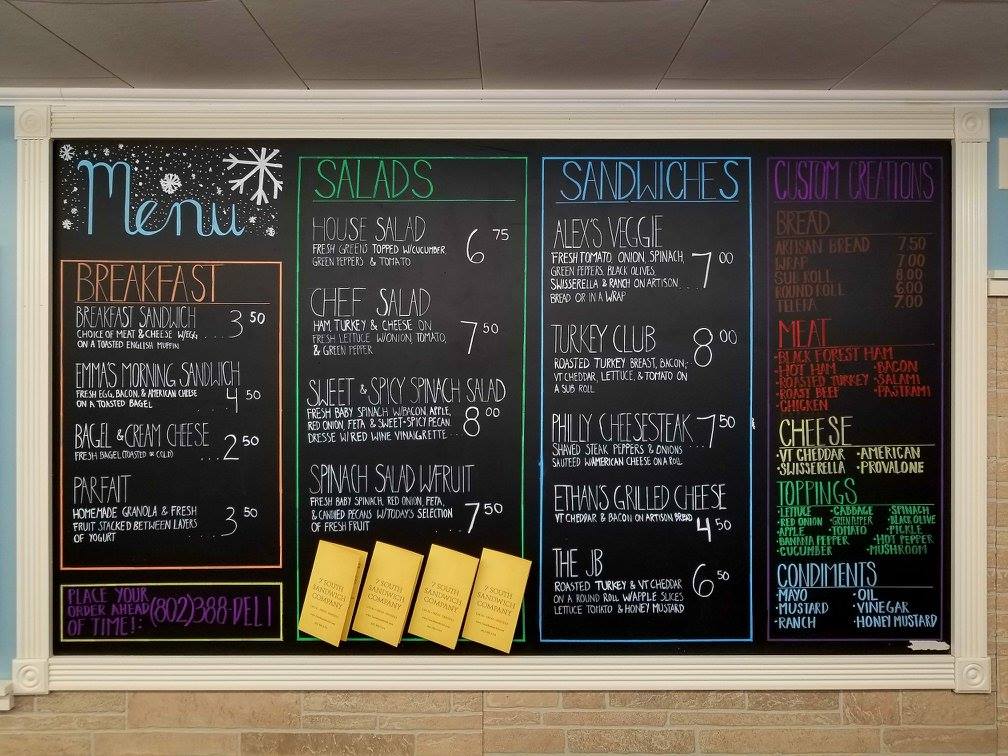 Menu
BREAKFAST
BREAKFAST SANDWICH
CHOICE OF MEAT & CHEESE W/EGG
ON A TOASTED ENGLISH MUFFIN
... 3 50
EMMA'S MORNING SANDWICH
FRESH EGG, BACON, & AMERICAN CHEESE
ON A TOASTED BAGEL ... 4 50
BAGEL & CREAM CHEESE
FRESH BAGEL (TOASTED OR COLD) ... 2 50
PARFAIT
HOMEMADE GRANOLA & FRESH
FRUIT STACKED BETWEEN LAYERS
OF YOGURT
... 3 50
PLACE YOUR
ORDER AHEAD
OF TIME!:
(802)388-DELI
SALADS
HOUSE SALAD
FRESH GREENS TOPPED W/CUCUMBER,
GREEN PEPPERS & TOMATO
6 75
CHEF SALAD
HAM, TURKEY & CHEESE ON
FRESH LETTUCE W/ONION, TOMATO,
& GREEN PEPPER
7 50
SWEET & SPICY SPINACH SALAD
FRESH BABY SPINACH W/BACON, APPLE,
RED ONION, FETA & SWEET+SPICY PECAN.
DRESSE W/RED WINE VINAIGRETTE ... 8 00
SPINACH SALAD W/FRUIT
FRESH BABY SPINACH, RED ONION, FETA,
& CANDIED PECANS W/TODAY'S SELECTION
OF FRESH FRUIT
... 7 50
7 SOUTH
SANDWICH
COMPANY
7 SOUTH
SANDWICH
COMPANY
7 SOUTH
SANDWICH
COMPANY
7 SOUTH
SANDWICH
COMPANY
SANDWICHES
ALEX'S VEGGIE
FRESH TOMATO, ONION, SPINACH,
GREEN PEPPERS, BLACK OLIVES,
SWISSERELLA & RANCH ON ARTISON
BREAD OR IN A WRAP
... 7 00
TURKEY CLUB
ROASTED TURKEY BREAST, BACON,
VT CHEDDAR, LETTUCE, & TOMATO ON
A SUB ROLL
8 00
PHILLY CHEESESTEAK
SHAVED STEAK PEPPERS & ONIONS
SAUTEED W/AMERICAN CHEESE ON A ROLL
7 50
ETHAN'S GRILLED CHEESE
VT CHEDDAR & BACON ON ARTISON BREAD
4 50
THE JB
ROASTED TURKEY & VT CHEDDAR
ON A ROUND ROLL W/APPLE SLICES
LETTUCE TOMATO & HONEY MUSTARD
6 50
CUSTOM CREATIONS
BREAD
ARTISAN BREAD 7.50
WRAP 7.00
SUB ROLL 8.00
ROUND ROLL 6.00
TELERA 7.00
MEAT
•BLACK FOREST HAM
•HOT HAM •BACON
•ROASTED TURKEY •SALAMI
•ROAST BEEF •PASTRAMI
•CHICKEN
CHEESE
•VT CHEDDAR •AMERICAN
•SWISSERELLA •PROVALONE
TOPPINGS
•LETTUCE •CABBAGE •SPINACH
•RED ONION •GREEN PEPPER •BLACK OLIVE
•APPLE •TOMATO •PICKLE
•BANANA PEPPER •HOT PEPPER
•CUCUMBER •MUSHROOM
CONDIMENTS
•MAYO •OIL
•MUSTARD •VINEGAR
•RANCH •HONEY MUSTARD